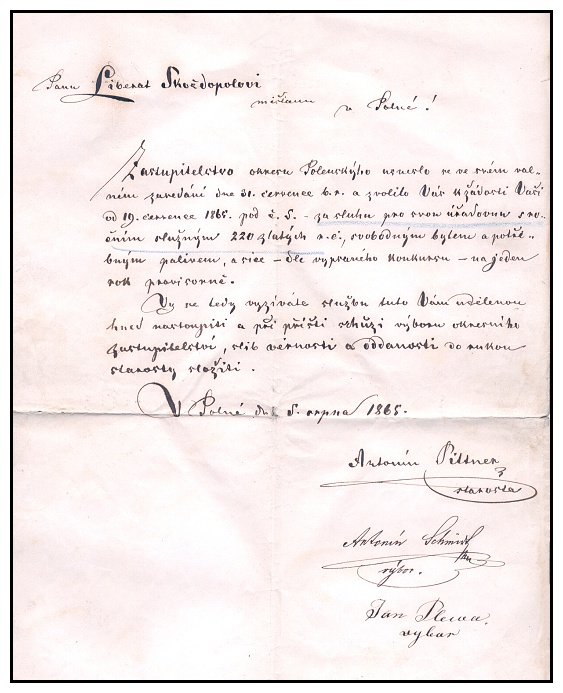 Panu Liberat Skočdopolovi
měšťanu v Polné!
Zastupitelstvo okresu Polenského usneslo se ve svém val-
ném zasedání dne 31. července b. r. a zvolilo Vás k žádosti Vaší
od 19. července 1865. pod č. 5. - za sluhu pro svou úřadovnu s ro-
čním služným 220 zlatých r. č., svobodným bytem a potře-
bným palivem, a sice - dle vypsaného konkursu - na jeden
rok provisorně.
Vy se tedy vyzíváte službu tuto Vám udělenou
hned nastoupiti a při příští schůzi výboru okresního
zastupitelství, slib věrnosti a oddanosti do rukou
starosty složiti.
V Polné dne 5. srpna 1865.
Antonín Pittner
starosta
Antonín Schmidt
výbor.
Jan Plewa.
vybor